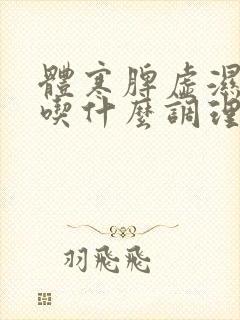 體寒脾虛濕
喫什麼調理
羽飛飛